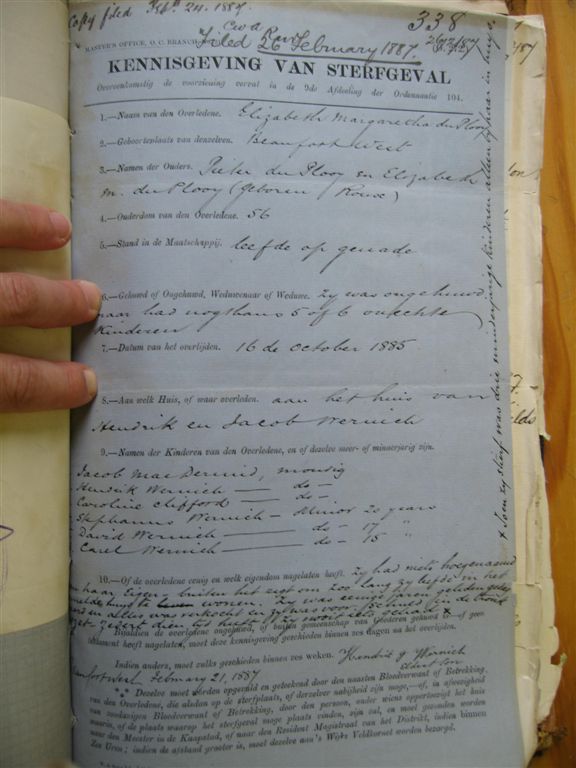 Copy filed Feby. 24. 1887.
338
MASTER'S OFFICE, O. C. BRANCH
Filed 26 February 1887.
KENNISGEVING VAN STERFGEVAL
Overeenkomstig de voorziening vervat in de 9de Afdeeling der Ordonnantie 104.
1.—Naam van den Overledene. Elizabeth Margaretha du Plooy
2.—Geboorteplaats van denzelven. Beaufort West
3.—Namen der Ouders. Pieter du Plooy en Elizabeth
M. du Plooy (geboren Roux)
4.—Ouderdom van den Overledene. 56
5.—Stand in de Maatschappij. leefde op genade
6.—Gehuwd of Ongehuwd, Weduwenaar of Weduwe. Zy was ongehuwd
maar had nogthans 5 of 6 onechte
kinderen
7.—Datum van het overlijden. 16 de October 1885
8.—Aan welk Huis, of waar overleden. aan het huis van
Hendrik en Jacob Wernich
9.—Namen der Kinderen van den Overledene, en of dezelve meer- of minderjarig zijn.
Jacob MacDermid, mondig
Hendrik Wernich — do —
Caroline Clifford — do —
Stephanus Wernich — Minor 20 years
David Wernich — do — 17 "
Carel Wernich — do — 15 "
10.—Of de overledene eenig en welk eigendom nagelaten heeft. Zy had niets hoegenaamd
van haar eigen – buiten het regt om zoo lang zy leefde in het
wonen. Zy was eenige jaren geleden
en alles was verkocht en zy was
Bijaldien de overledene ongehuwd, of buiten gemeenschap van Goederen gehuwd is—of geen
testament heeft nagelaten, moet deze kennisgeving geschieden binnen zes dagen na het overlijden.
Indien anders, moet zulks geschieden binnen zes weken. Hendrik J Wernich
eldest son
Beaufort West February 21, 1887
Dezelve moet worden opgesteld en geteekend door den naasten Bloedverwant of Betrekking,
van den Overledene, die alsdan op de sterfplaats, of derzelver nabijheid zijn moge,—of, in afwezigheid
van zoodanigen Bloedverwant of Betrekking, door den persoon, onder wiens oppertoezigt het huis
waarin, of de plaats waarop het sterfgeval moge plaats vinden, zijn zal, en moet gezonden worden
naar den Meester in de Kaapstad, of naar den Resident Magistraat van het Distrikt, indien binnen
Zes Uren; indien de afstand grooter is, moet dezelve aan 's Wijks Veldkornet worden bezorgd.
x toen zy stierf was drie minderjarige kinderen alleen by haar in huys